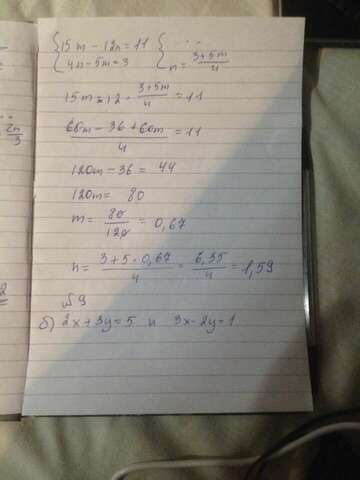 15m - 12n = 11
4n - 5m = 3
...
n = (3+5m)/4
15m - 12 · (3+5m)/4 = 11
(60m - 36 + 60m)/4 = 11
120m - 36 = 44
120m = 80
m = 80/120 = 0,67
n = (3+5·0,67)/4 = 6,35/4 = 1,59
№9
б) 2x + 3y = 5 и 3x - 2y = 1
2n/3